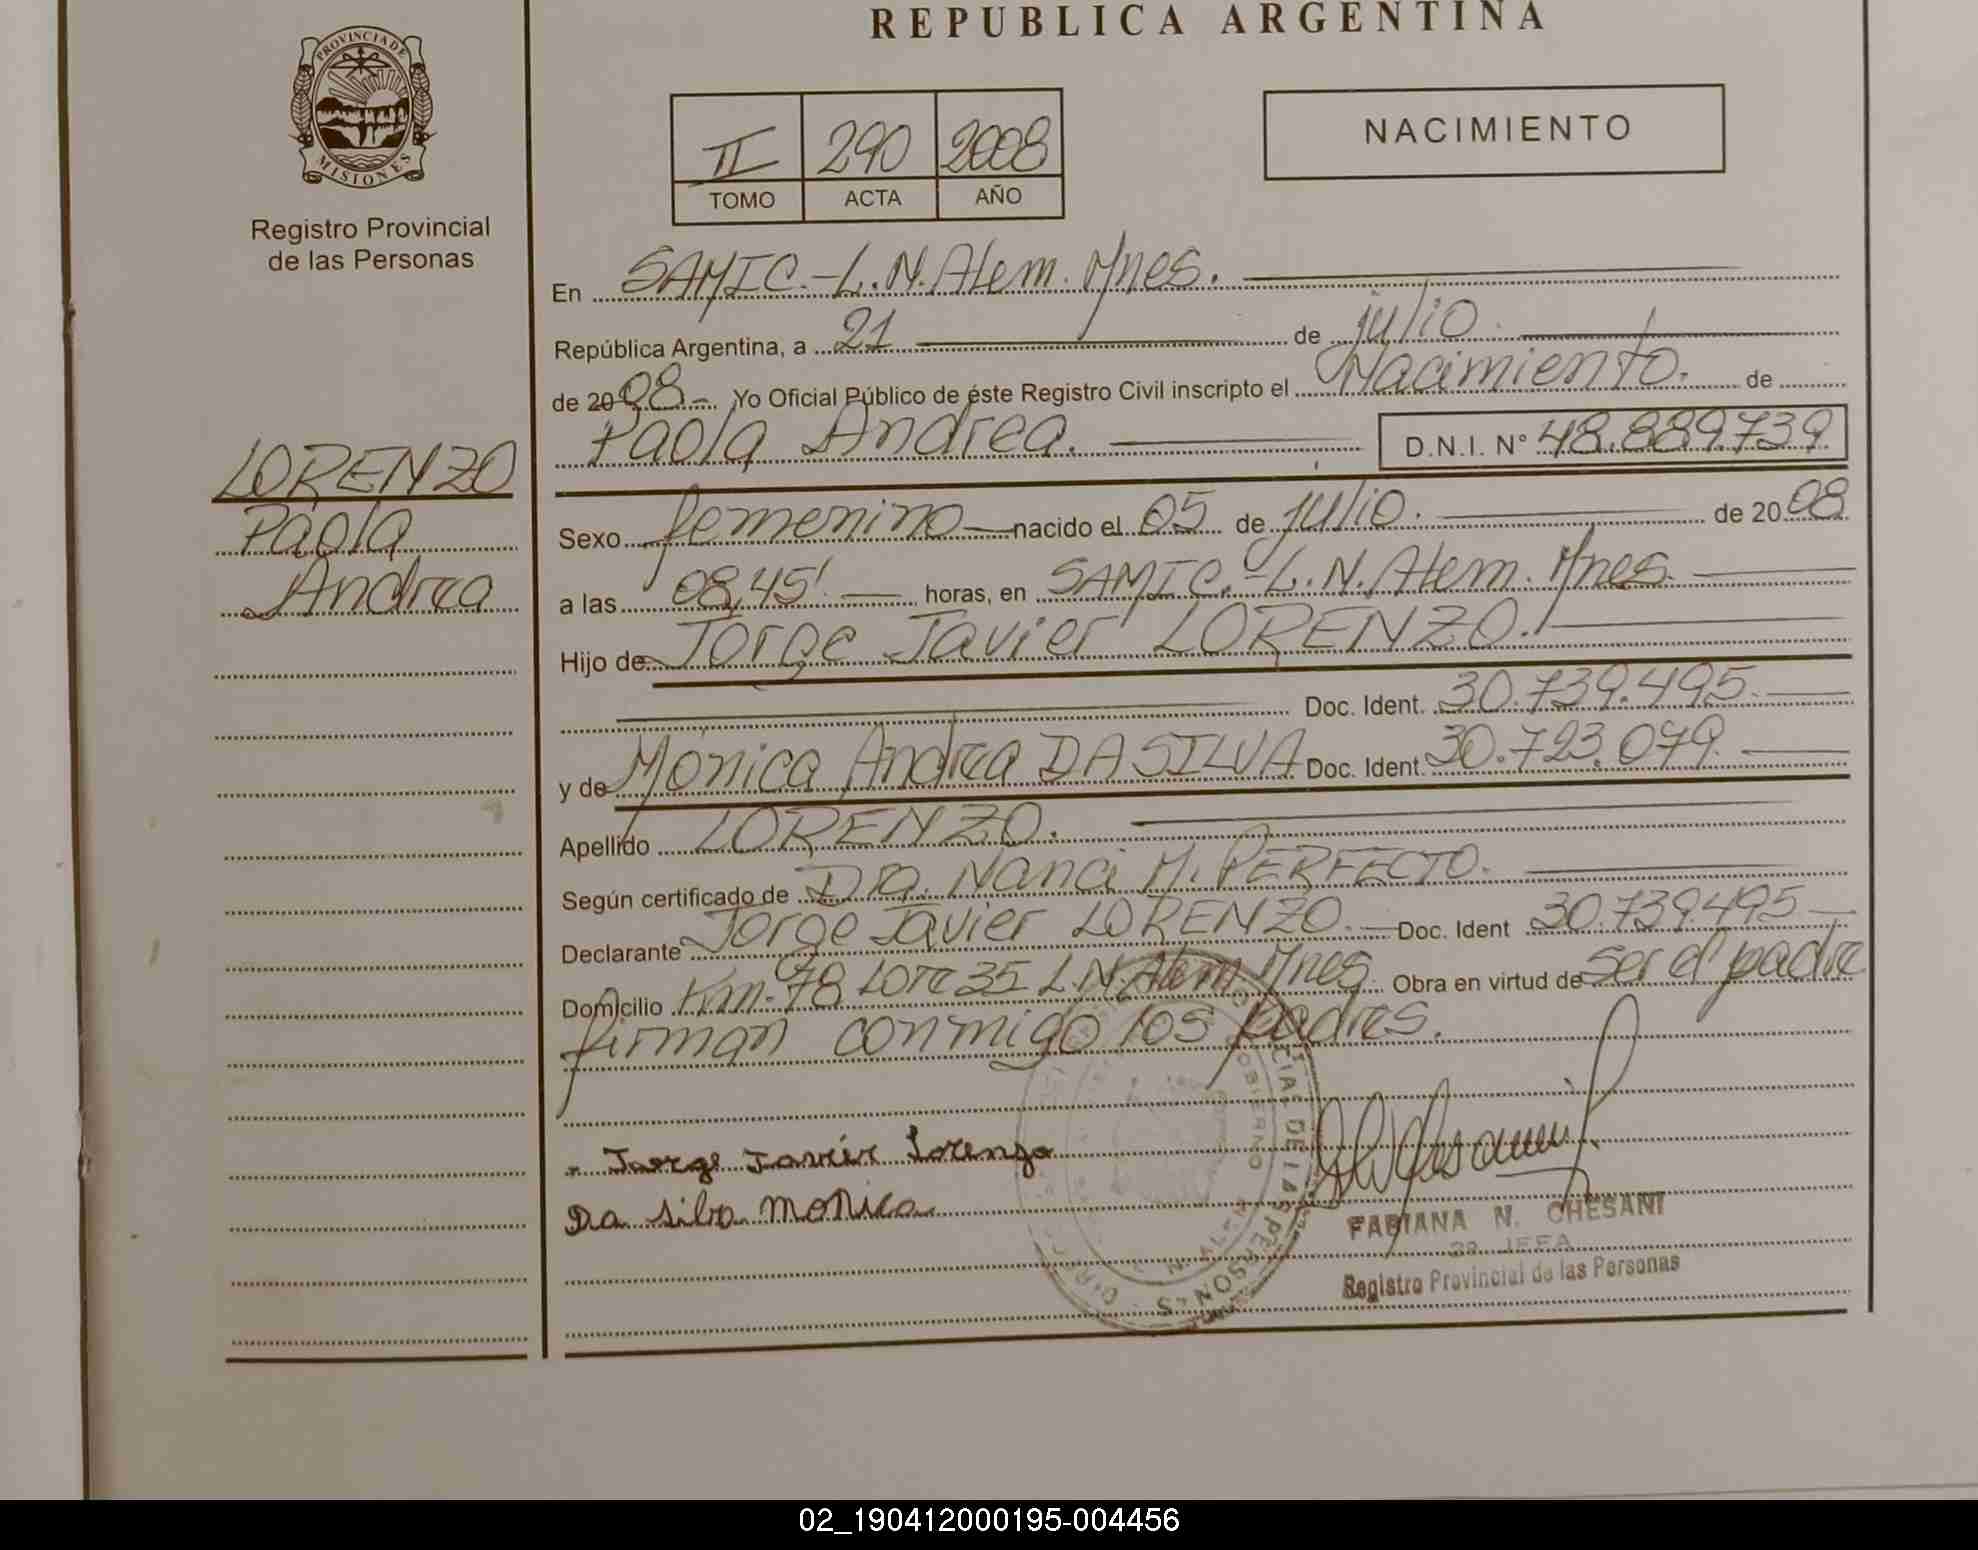 REPUBLICA ARGENTINA
PROVINCIA DE
MISIONES
Registro Provincial
de las Personas
II 290 2008
TOMO ACTA AÑO
NACIMIENTO
En SAMIC.-L.N.Alem. Mnes.
República Argentina, a 21 de julio.
de 2008.- Yo Oficial Público de éste Registro Civil inscripto el Nacimiento. de
Paola Andrea. D.N.I. N° 48.889.739
LORENZO
Paola
Andrea
Sexo femenino nacido el 05 de julio. de 2008
a las 08,45' horas, en SAMIC.-L.N.Alem. Mnes.
Hijo de Jorge Javier LORENZO.
Doc. Ident. 30.739.495.
y de Mónica Andrea DA SILVA Doc. Ident. 30.723.079.
Apellido LORENZO.
Según certificado de Dra. Nanci M. PERFECTO.
Declarante Jorge Javier LORENZO. Doc. Ident 30.739.495
Domicilio Km. 78 Lote 35 L.N.Alem Mnes. Obra en virtud de ser el padre
firman conmigo los padres.
Jorge Javier Lorenzo
Da silva monica
FABIANA N. CHESANI
JEFA
Registro Provincial de las Personas
02_190412000195-004456